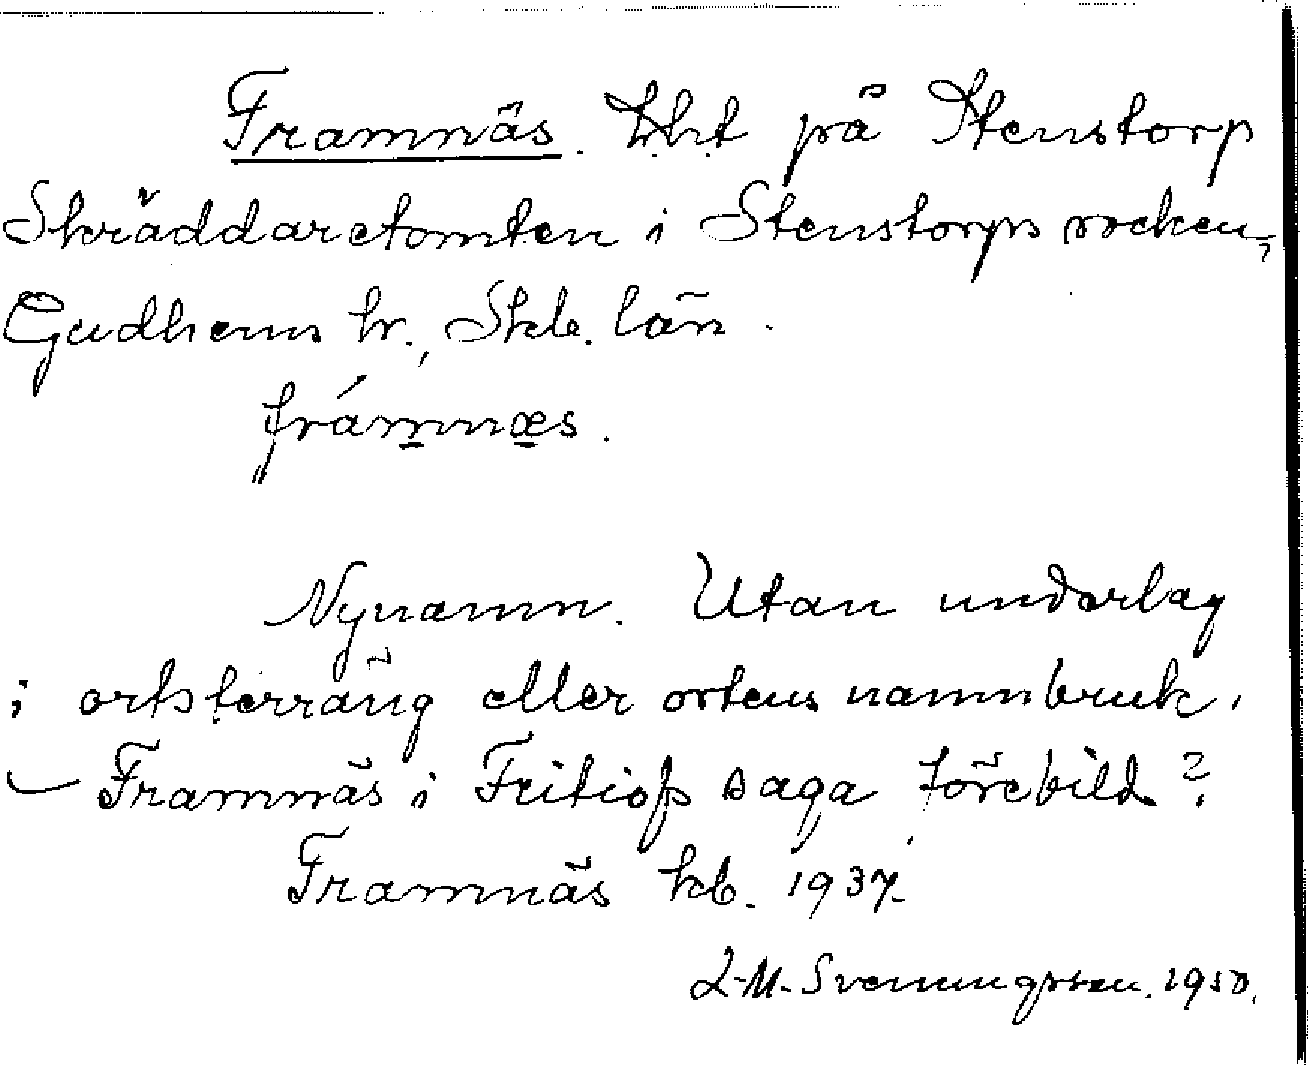 Framnäs. Lht på Stenstorp
Skräddaretomten i Stenstorps socken,
Gudhems hr., Skb. län.
frámnæs.
Nynamn. Utan underlag
i ortsterräng eller ortens namnbruk.
– Framnäs i Fritiofs saga förebild?
Framnäs kb. 1937.
L-M. Svenungsson. 1950.